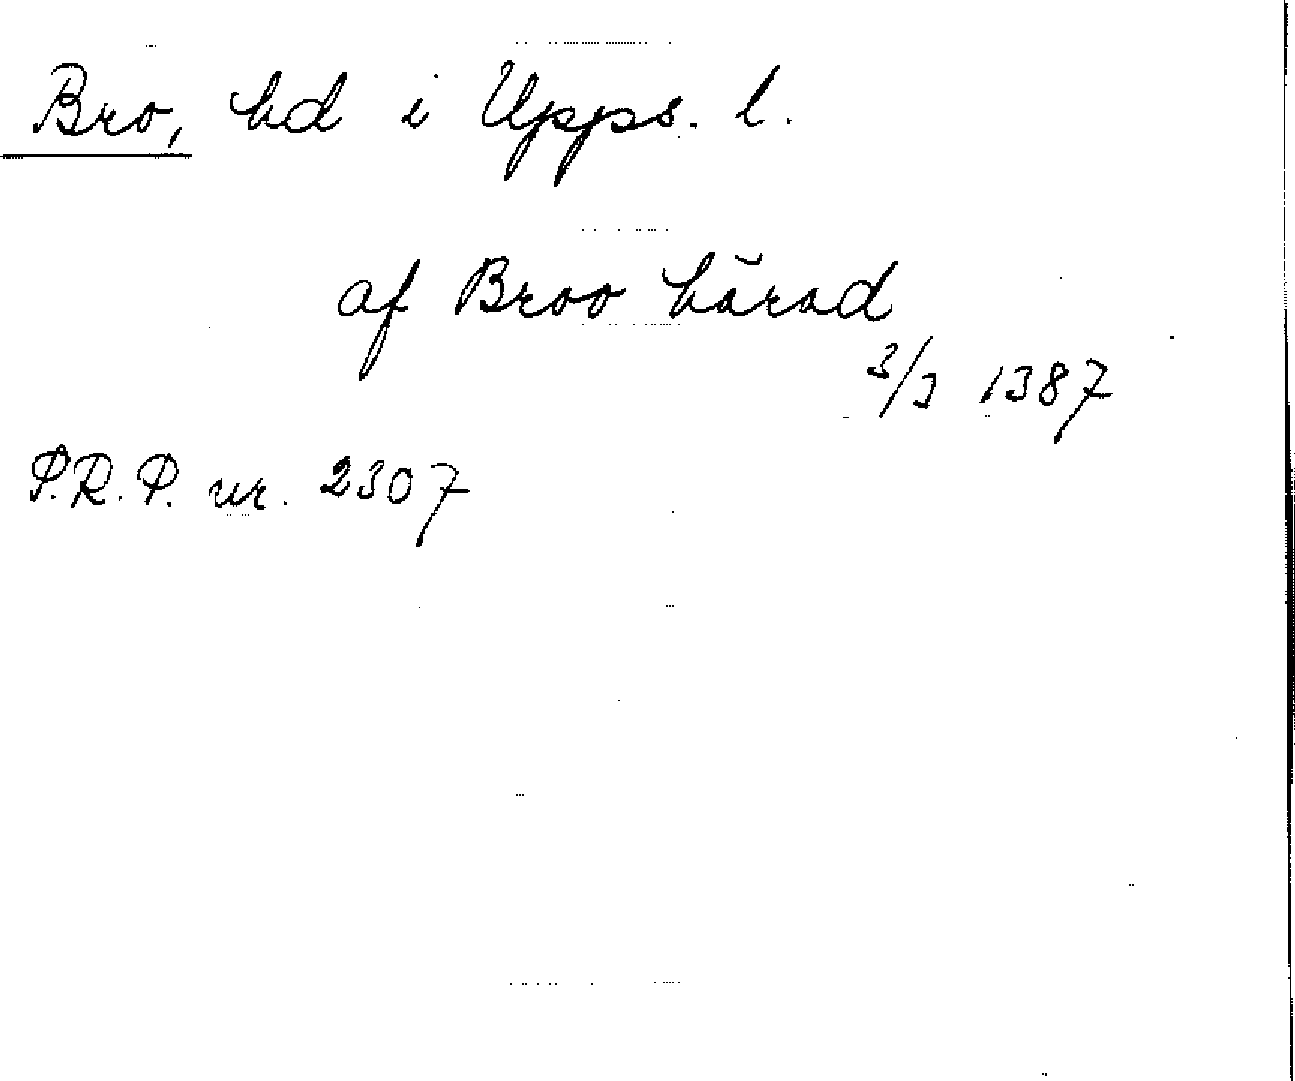 Bro, hd i Upps. l.
af Broo härad
3/3 1387
P.R.P. nr. 2307